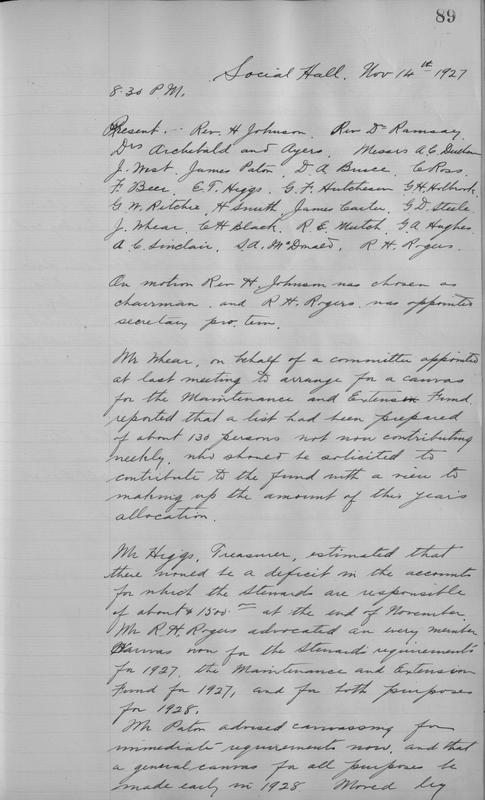 89
Social Hall. Nov 14th 1927
8.30 P.M.
Present. Rev. H Johnson. Rev Dr Ramsay,
Drs Archebald and Ayers, Messrs A.E.
J. West. James Paton, D A Bruce, C Ross.
F Beer, E.T. Higgs, G. F. Hutcheson G.H. Holbrook,
G. W. Ritchie, H Smith, James Carter, G.D. Steele,
J. Whear, C H Black, R. E. Mutch, G A Hughes
A. C. Sinclair, S.A. McDonald, R. H. Rogers.
On motion Rev H. Johnson was chosen as
chairman and R H. Rogers was appointed
secretary pro. tem.
Mr Whear, on behalf of a committee appointed
at last meeting to arrange for a canvas
for the Maintenance and Extension Fund,
reported that a list had been prepared
of about 130 persons not now contributing
weekly, who should be solicited to
contribute to the fund with a view to
making up the amount of this year's
allocation.
Mr Higgs, Treasurer, estimated that
there would be a deficit in the accounts
for which the Stewards are responsible
of about $1500 at the end of November.
Mr R. H. Rogers advocated an every member
canvas now for the Stewards requirements
for 1927, the Maintenance and Extension
Fund for 1927, and for both purposes
for 1928.
Mr Paton advised canvassing for
immediate requirements now, and that
a general canvas for all purposes be
made early in 1928 Moved by